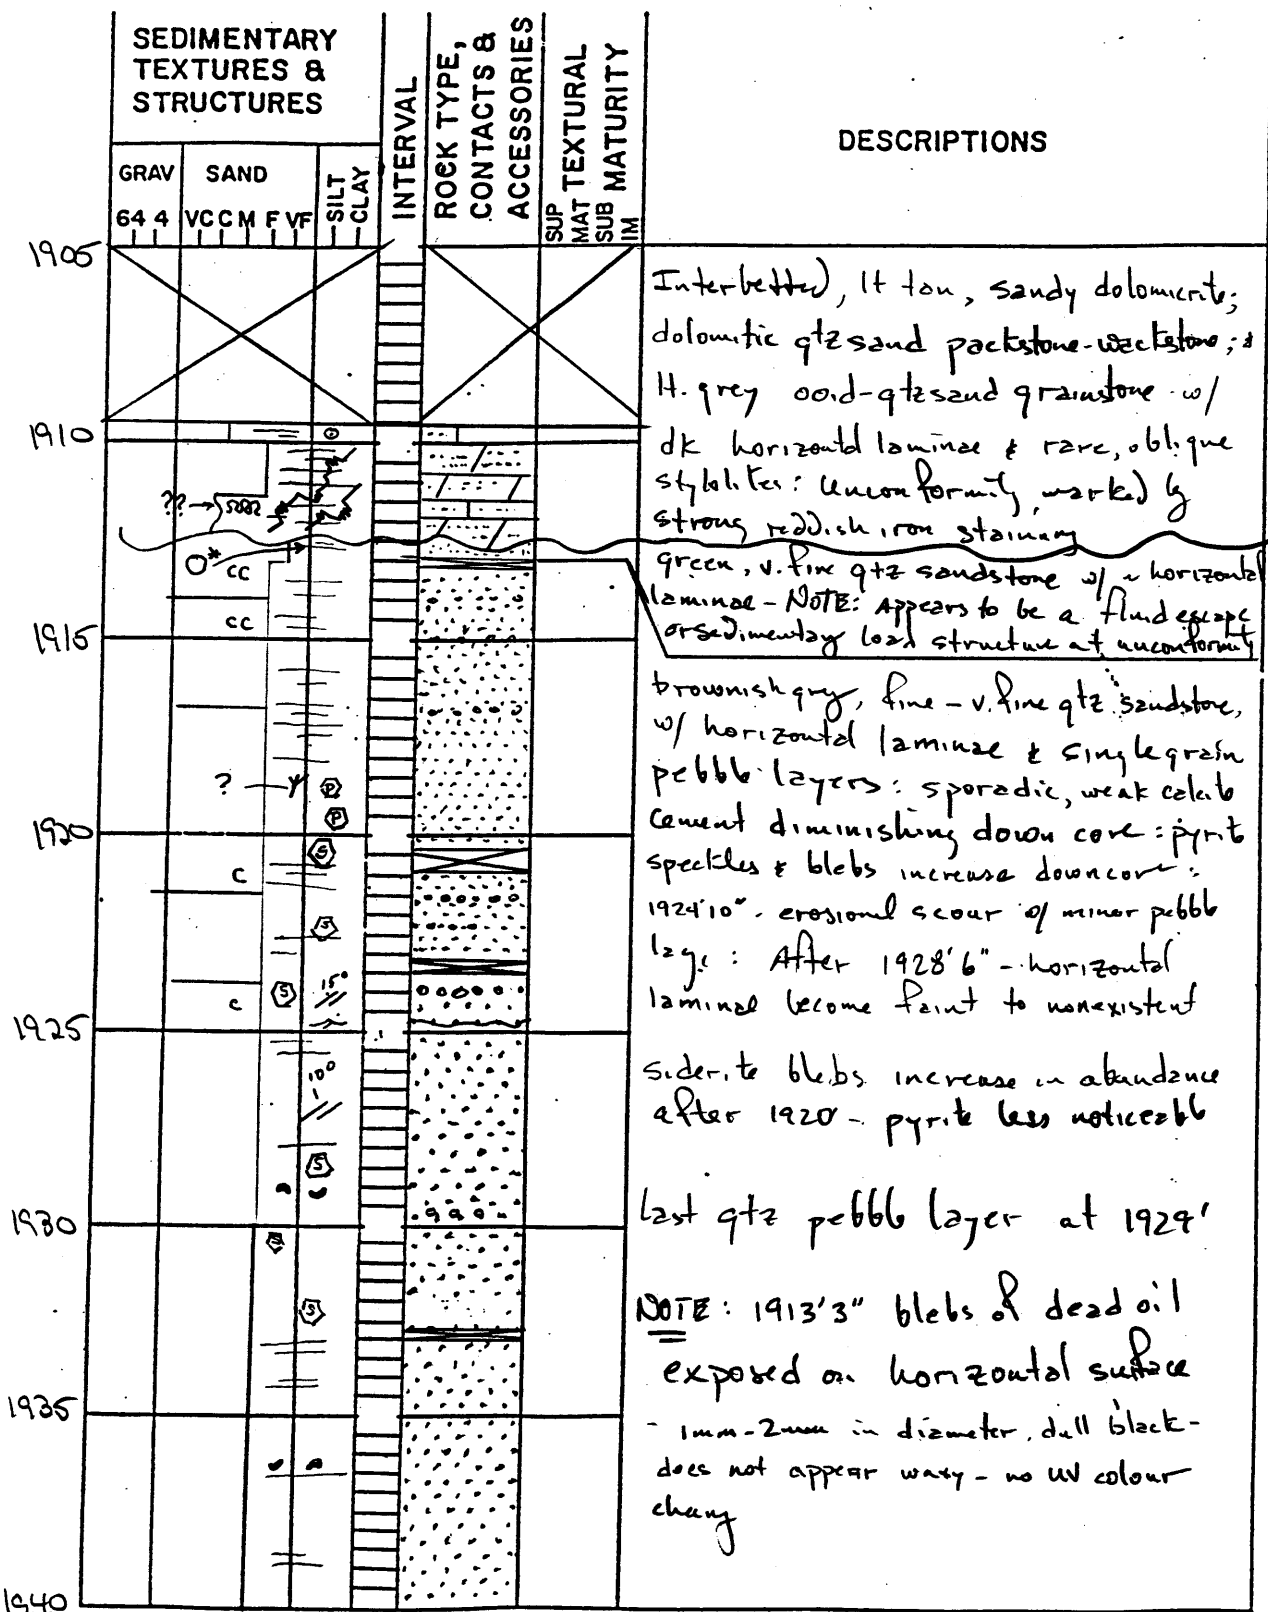 SEDIMENTARY
TEXTURES &
STRUCTURES
GRAV SAND
SILT
CLAY
64 4 VC C M F VF
INTERVAL
ROCK TYPE,
CONTACTS &
ACCESSORIES
TEXTURAL
MATURITY
SUP
MAT
SUB
IM
DESCRIPTIONS
1905
Interbetted, lt tan, sandy dolomicrite;
dolomitic qtz sand packstone-wackstone; &
lt. grey ooid-qtz sand grainstone w/
1910
dk horizontal laminae & rare, oblique
stylolites: Unconformity marked by
??
strong reddish iron staining
O* cc
green, v. fine qtz sandstone w/ ~ horizontal
laminae - NOTE: Appears to be a fluid escape
cc
1915
or sedimentary load structure at unconformity
brownish grey, fine - v. fine qtz sandstone,
w/ horizontal laminae & single grain
? P
pebble layers: sporadic, weak calcite
P
1920
cement diminishing down core: pyrite
S
speckles & blebs increase downcore:
C
1924'10" - erosional scour w/ minor pebble
S
lag: After 1928'6" - horizontal
C S 15°
laminae become faint to nonexistent
1925
10°
siderite blebs increase in abundance
after 1920 - pyrite less noticeable
S
1930
Last qtz pebble layer at 1929'
S
S
NOTE: 1913'3" blebs of dead oil
exposed on horizontal surface
1935
- 1mm-2mm in diameter, dull black -
does not appear waxy - no UV colour
chang
1940